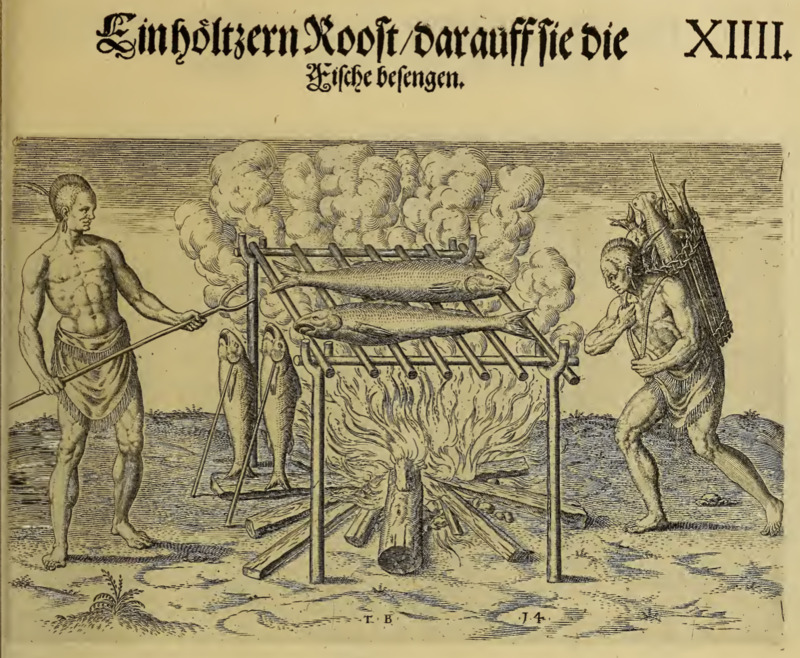 Ein höltzern Roost/ darauff sie die XIIII.
Fische besengen.
T. B 14.